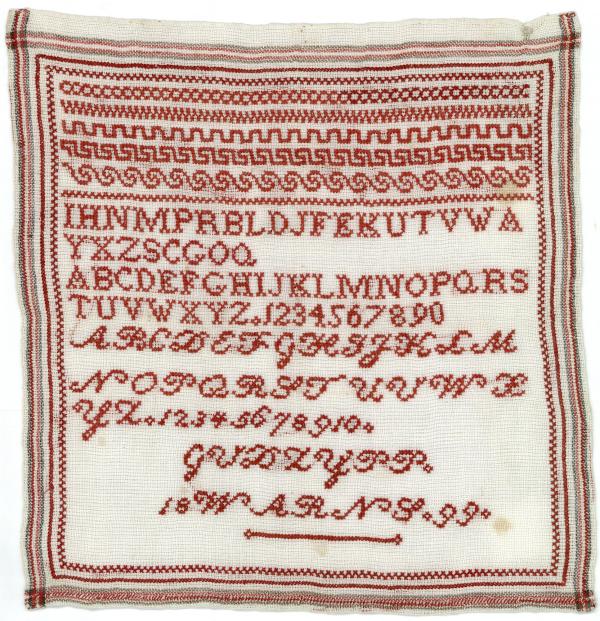 IHNMPRBLDJFEKUTVWA
YXZSCGOQ
ABCDEFGHIJKLMNOPQRS
TUVWXYZ.1234567890
ABCDEFGHIJKLM
NOPQRSTUVWX
YZ.12345678910.
GUDZYPP.
18WARNS.99.